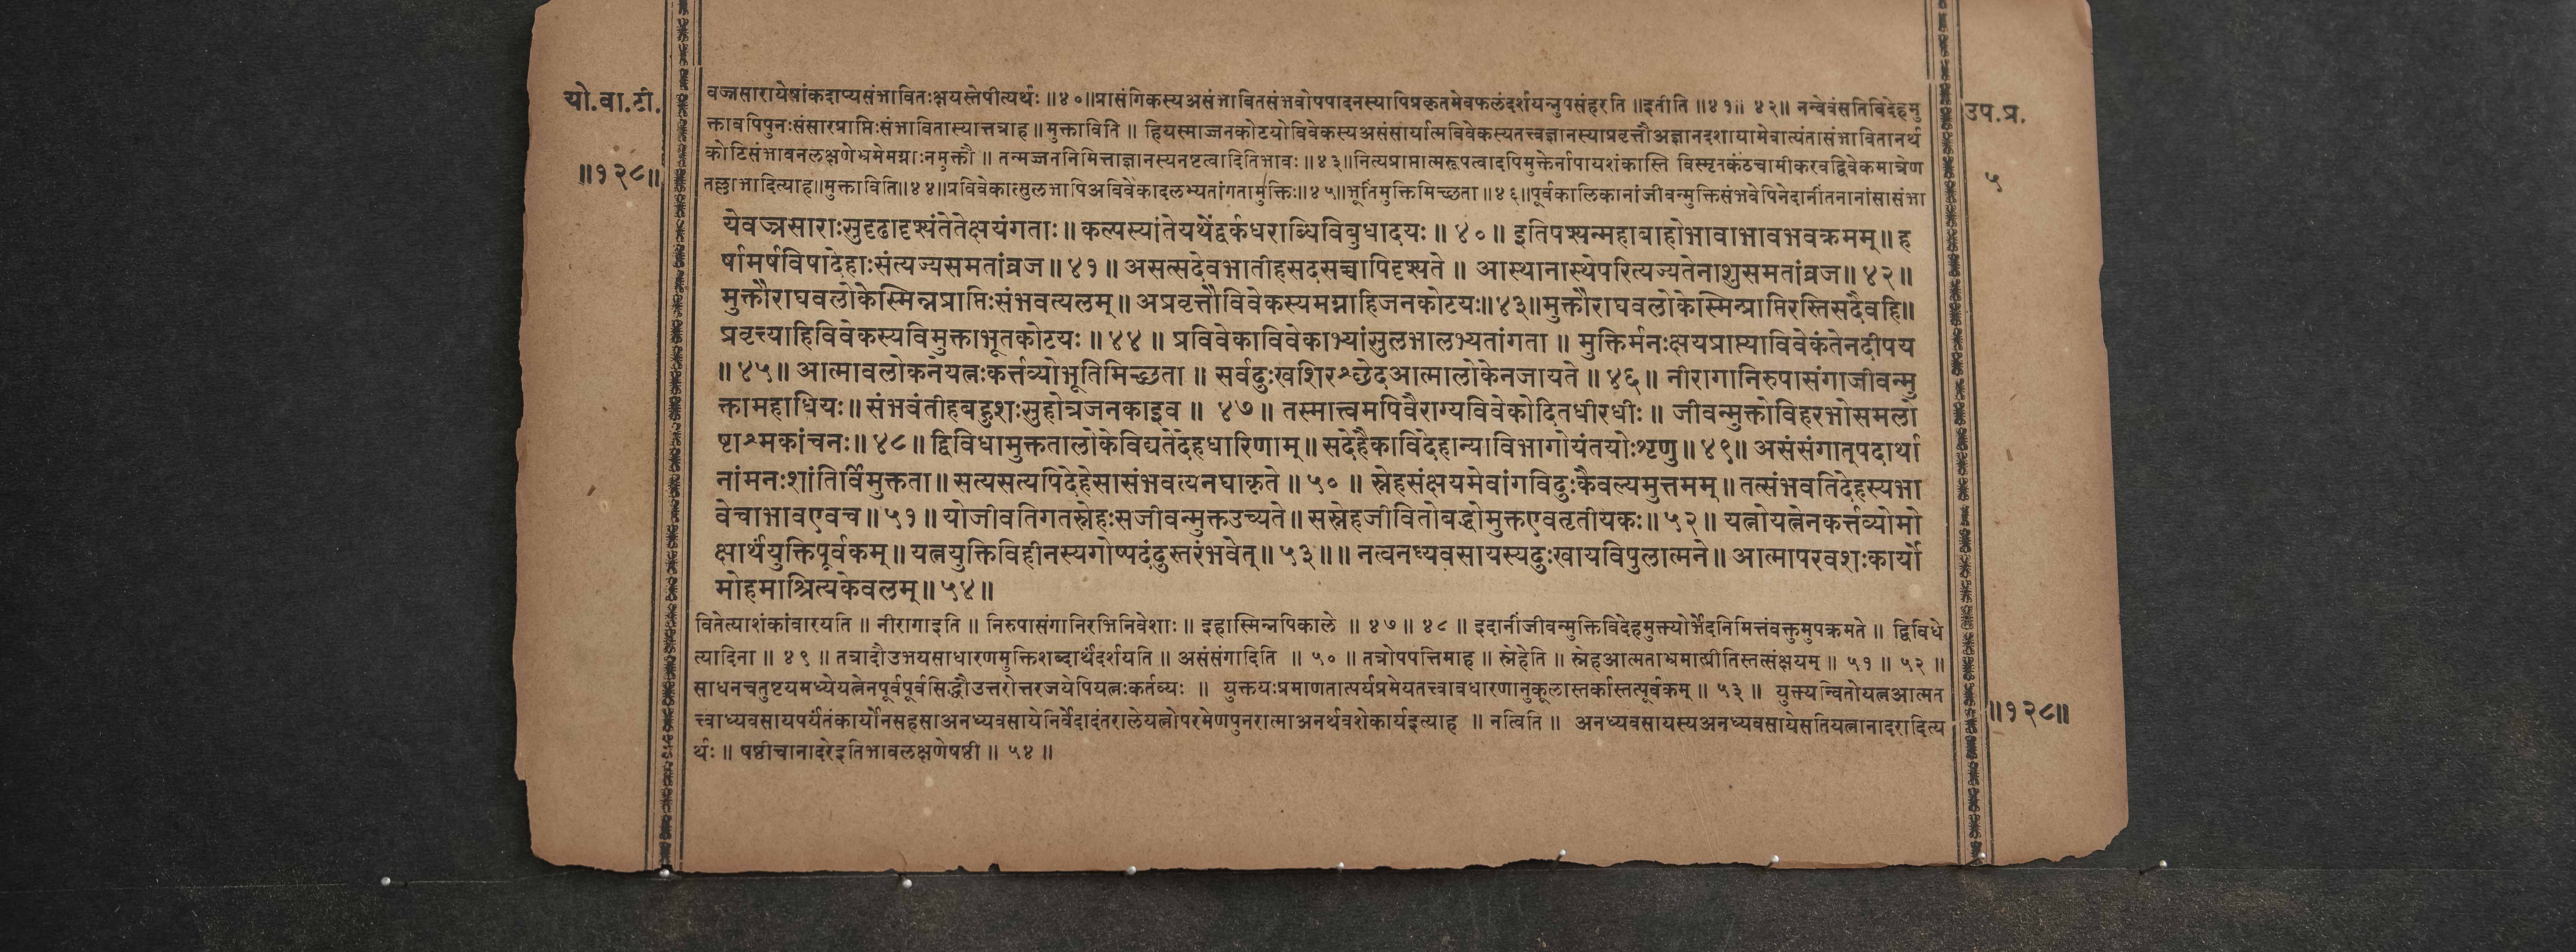 यो.वा.टी.
॥१२८॥
वज्रसारायेषांकदाप्यसंभावितःक्षयस्तेपीत्यर्थः ॥४०॥प्रासंगिकस्यअसंभावितसंभवोपपादनस्यापिप्रकृतमेवफलंदर्शयन्नुपसंहरति ॥इतीति ॥४१॥ ४२॥ नन्वेवंसतिविदेहमु
क्तावपिपुनःसंसारप्राप्तिःसंभावितास्यात्तत्राह॥मुक्ताविति ॥ हियस्माज्जनकोटयोविवेकस्यअसंसार्यात्मविवेकस्यतत्त्वज्ञानस्याप्रवृत्तौअज्ञानदशायामेवात्यंतासंभावितानर्थ
कोटिसंभावनलक्षणेभ्रमेमग्नाःनमुक्तौ ॥ तन्मज्जननिमित्ताज्ञानस्यनष्टत्वादितिभावः॥४३॥नित्यप्राप्तात्मरूपत्वादपिमुक्तेर्नापायशंकास्ति विस्मृतकंठचामीकरवद्विवेकमात्रेण
तल्लाभादित्याह॥मुक्ताविति॥४४॥प्रविवेकात्सुलभापिअविवेकादलभ्यतांगतामुक्तिः॥४५॥भूतिंमुक्तिमिच्छता॥४६॥पूर्वकालिकानांजीवन्मुक्तिसंभवेपिनेदानींतनानांसासंभा
येवज्रसाराःसुदृढादृश्यंतेतेक्षयंगताः॥ कल्पस्यांतेयथेंद्वर्कधराब्धिविबुधादयः॥ ४०॥ इतिपश्यन्महाबाहोभावाभावभवक्रमम्॥ ह
र्षामर्षविषादेहाःसंत्यज्यसमतांव्रज॥४१॥ असत्सदेवभातीहसदसच्चापिदृश्यते ॥ आस्थानास्थेपरित्यज्यतेनाशुसमतांव्रज॥ ४२॥
मुक्तौराघवलोकेस्मिन्नप्राप्तिःसंभवत्यलम्॥ अप्रवृत्तौविवेकस्यमग्नाहिजनकोटयः॥४३॥मुक्तौराघवलोकेस्मिन्प्राप्तिरस्तिसदैवहि॥
प्रवृत्त्याहिविवेकस्यविमुक्ताभूतकोटयः॥ ४४ ॥ प्रविवेकाविवेकाभ्यांसुलभालभ्यतांगता ॥ मुक्तिर्मनःक्षयप्राप्त्याविवेकंतेनदीपय
॥४५॥ आत्मावलोकनेयत्नःकर्त्तव्योभूतिमिच्छता ॥ सर्वदुःखशिरश्छेदआत्मालोकेनजायते ॥ ४६॥ नीरागानिरुपासंगाजीवन्मु
क्तामहाधियः॥ संभवंतीहबहुशःसुहोत्रजनकाइव ॥ ४७॥ तस्मात्त्वमपिवैराग्यविवेकोदितधीरधीः॥ जीवन्मुक्तोविहरभोसमलो
ष्टाश्मकांचनः॥ ४८॥ द्विविधामुक्ततालोकेविद्यतेदेहधारिणाम्॥ सदेहैकाविदेहान्याविभागोयंतयोःशृणु॥ ४९॥ असंसंगात्पदार्था
नांमनःशांतिर्विमुक्तता॥ सत्यसत्यपिदेहेसासंभवत्यनघाकृते ॥ ५० ॥ स्नेहसंक्षयमेवांगविदुःकैवल्यमुत्तमम्॥ तत्संभवतिदेहस्यभा
वेचाभावएवच॥५१॥ योजीवतिगतस्नेहःसजीवन्मुक्तउच्यते॥ सस्नेहजीवितोबद्धोमुक्तएवतृतीयकः॥५२॥ यत्नोयत्नेनकर्त्तव्योमो
क्षार्थंयुक्तिपूर्वकम्॥ यत्नयुक्तिविहीनस्यगोष्पदंदुस्तरंभवेत्॥ ५३॥॥ नत्वनध्यवसायस्यदुःखायविपुलात्मने॥ आत्मापरवशःकार्यो
मोहमाश्रित्यकेवलम्॥ ५४॥
वितेत्याशंकांवारयति ॥ नीरागाइति ॥ निरुपासंगानिरभिनिवेशाः ॥ इहास्मिन्नपिकाले ॥ ४७॥ ४८ ॥ इदानींजीवन्मुक्तिविदेहमुक्त्योर्भेदनिमित्तंवक्तुमुपक्रमते ॥ द्विविधे
त्यादिना ॥ ४९ ॥ तत्रादौउभयसाधारणमुक्तिशब्दार्थंदर्शयति ॥ असंसंगादिति ॥ ५० ॥ तत्रोपपत्तिमाह ॥ स्नेहेति ॥ स्नेहआत्मताभ्रमात्प्रीतिस्तत्संक्षयम् ॥ ५१ ॥ ५२ ॥
साधनचतुष्टयमध्येयत्नेनपूर्वपूर्वसिद्धौउत्तरोत्तरजयेपियत्नःकर्तव्यः ॥ युक्तयःप्रमाणतात्पर्यप्रमेयतत्त्वावधारणानुकूलास्तर्कास्तत्पूर्वकम्॥ ५३ ॥ युक्त्यन्वितोयत्नआत्मत
त्त्वाध्यवसायपर्यंतंकार्योनसहसाअनध्यवसायेनिर्वेदादंतरालेयत्नोपरमेणपुनरात्माअनर्थवशेकार्यइत्याह ॥ नत्विति ॥ अनध्यवसायस्यअनध्यवसायेसतियत्नानादरादित्य
र्थः ॥ षष्ठीचानादरेइतिभावलक्षणेषष्ठी ॥ ५४ ॥
उप.प्र.
५
॥१२८॥